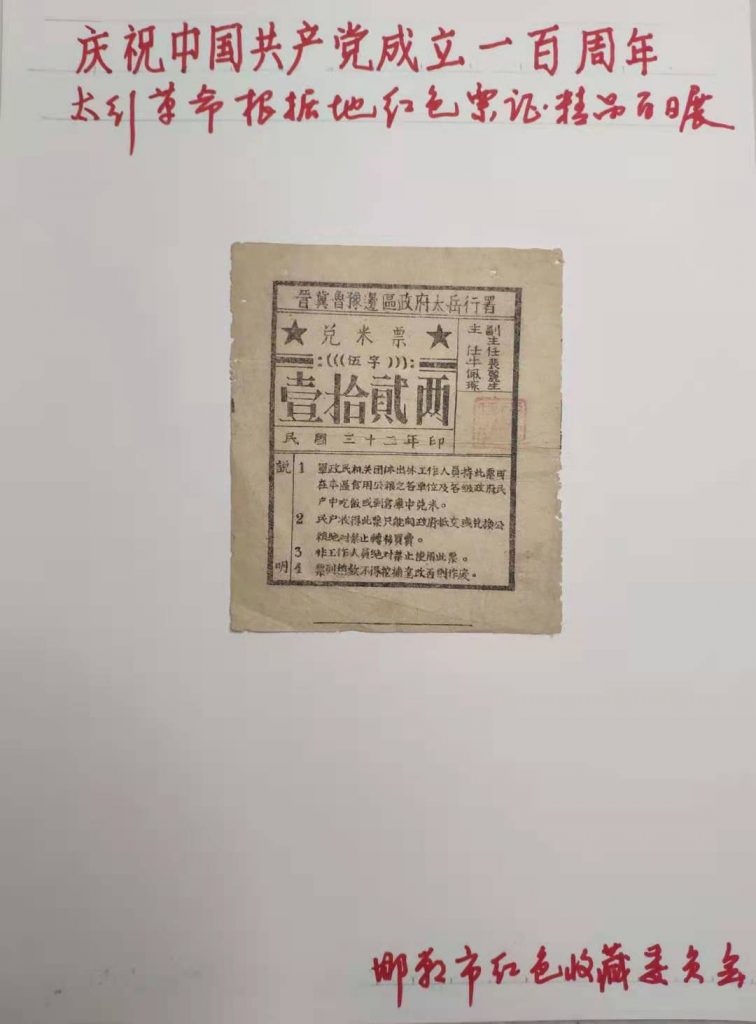 庆祝中国共产党成立一百周年
太行革命根据地红色票证·精品百日展
晋冀鲁豫邊區政府太岳行署
★ 兑米票 ★
(((伍字)))
壹拾貳兩
民國三十二年印
副主任裴麗生
主 任牛佩琮
説明
1 軍政民机关团体出外工作人員持此票可
在本區食用公粮之各单位及各級政府民
户中吃飯或到倉庫中兑米。
2 民户收得此票只能向政府抵交或兑換公
粮絶对禁止轉移買賣。
3 非工作人員絶对禁止使用此票。
4 票面糧数不得挖補塗改否則作废。
邯郸市红色收藏委员会